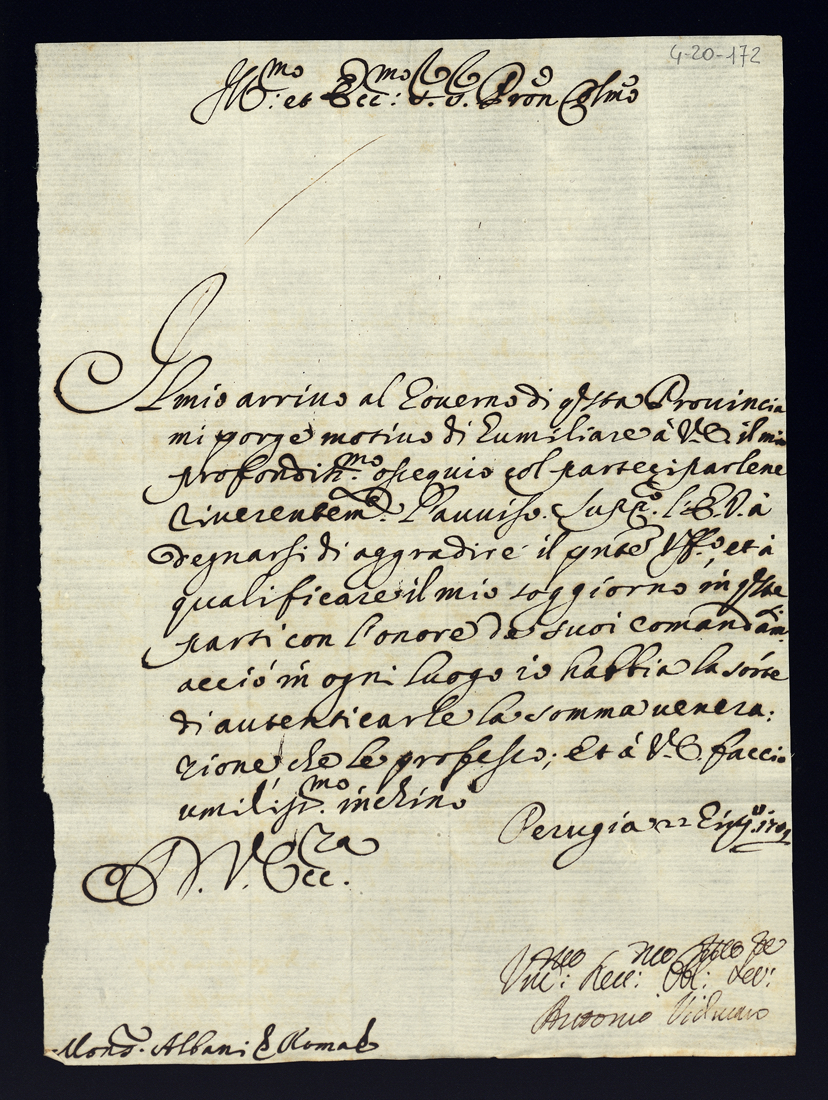 4-20-172
Ill:mo et Ecc:mo S. S. Pron Colmo
Il mio arriuo al Gouerno di qsta Prouincia
mi porge motiuo di humiliare à V.E. il mio
profondiss.mo ossequio col parteciparlene
riuerentem.te l'auuiso. Supp.co l'E.V. à
degnarsi di aggradire il pnte Uff.o, et à
qualificare il mio soggiorno in qste
parti con l'onore de suoi comandam.
acciò in ogni luogo io habbia la sorte
di autenticarle la somma uenera:
zione che le professo; Et à V.E. faccio
umiliss.mo inchino
Perugia 22 Giug.o
D. V. Ecc.za
Antonio Vidman
Mons.r Albani Roma